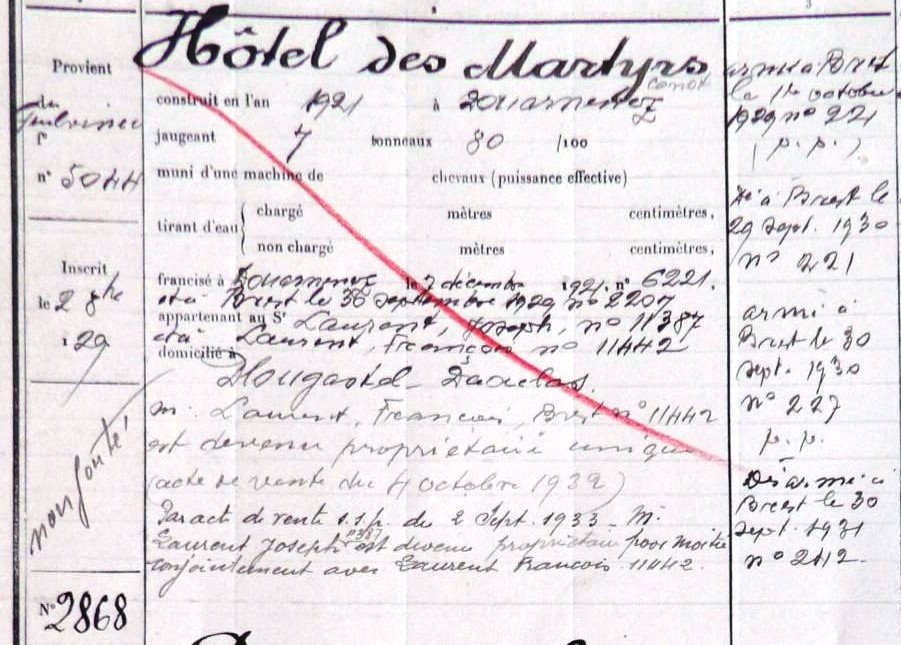 Hôtel des Martyrs
canot
construit en l'an 1921 à Douarnenez
jaugeant 7 tonneaux 80 /100
muni d'une machine de chevaux (puissance effective)
tirant d'eau { chargé mètres centimètres,
non chargé mètres centimètres,
francisé à Douarnenez le 7 décembre 1921, n° 6221.
et à Brest le 30 septembre 1929 n° 2207
appartenant au Sr Laurent, Joseph, n° 11387
et à Laurent, François n° 11442
domicilié à
Plougastel-Daoulas.
M. Laurent, François, Brest n° 11442
est devenu propriétaire unique
(acte de vente du 4 octobre 1932)
Par acte de vente s.s.p. du 2 Sept. 1933 M.
Laurent Joseph 11387 est devenu propriétaire pour moitié
conjointement avec Laurent François 11442.
Provient
du
Guilvinec
f°
n° 5044
Inscrit
le 2 8bre
129
non jointé
N° 2868
armé à Brest
le 1er octobre
1929 n° 221
(p.p.)
Dé à Brest le
29 sept. 1930
n° 221
armé à
Brest le 30
sept. 1930
n° 227
p.p.
Désarmé à
Brest le 30
sept. 1931
n° 242.